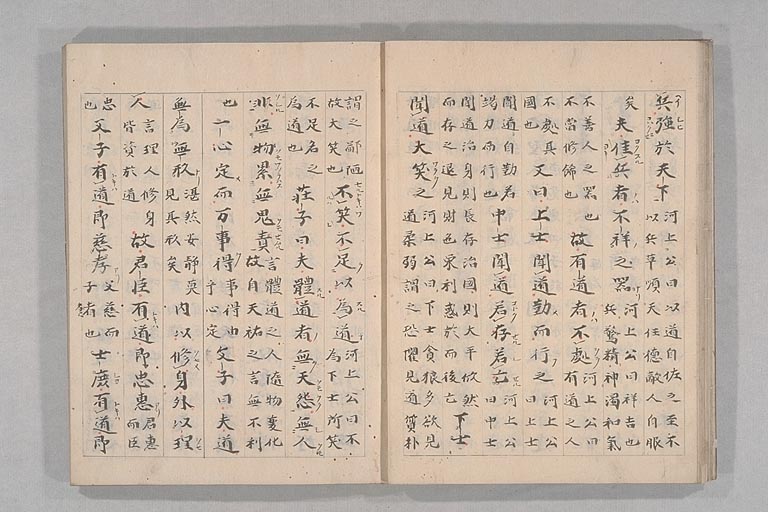 兵強於天下河上公曰以道自佐之主不以兵革順天任德敵人自服
矣夫佳兵者不祥之器河上公曰祥吉也兵驚精神濁和氣
不善人之器也不當修飾也故有道者不處河上公曰有道之人
不處其國也又曰上士聞道勤而行之河上公曰上士
聞道自勤若竭力而行也中士聞道若存若亡河上公曰中士
聞道治身則長存治國則大平然而存之退見財色榮利惑於而後亡下士
聞道大笑之河上公曰下士貪狼多欲見道柔弱謂之恐懼見道質朴
謂之鄙陋故大笑也不笑不足以為道河上公曰不為下士所笑
不足名之為道也莊子曰夫體道者無天怨無人
非無物累無鬼責言體道之人隨物変化故自天祐之言無不利
也一心定而万事得事得由于心定文子曰夫道
無為無形湛然安静莫見其形矣内以修身外以理
人言理人修身皆資於道故君臣有道即忠惠君惠而臣
忠也父子有道即慈孝父慈而子也士庶有道即